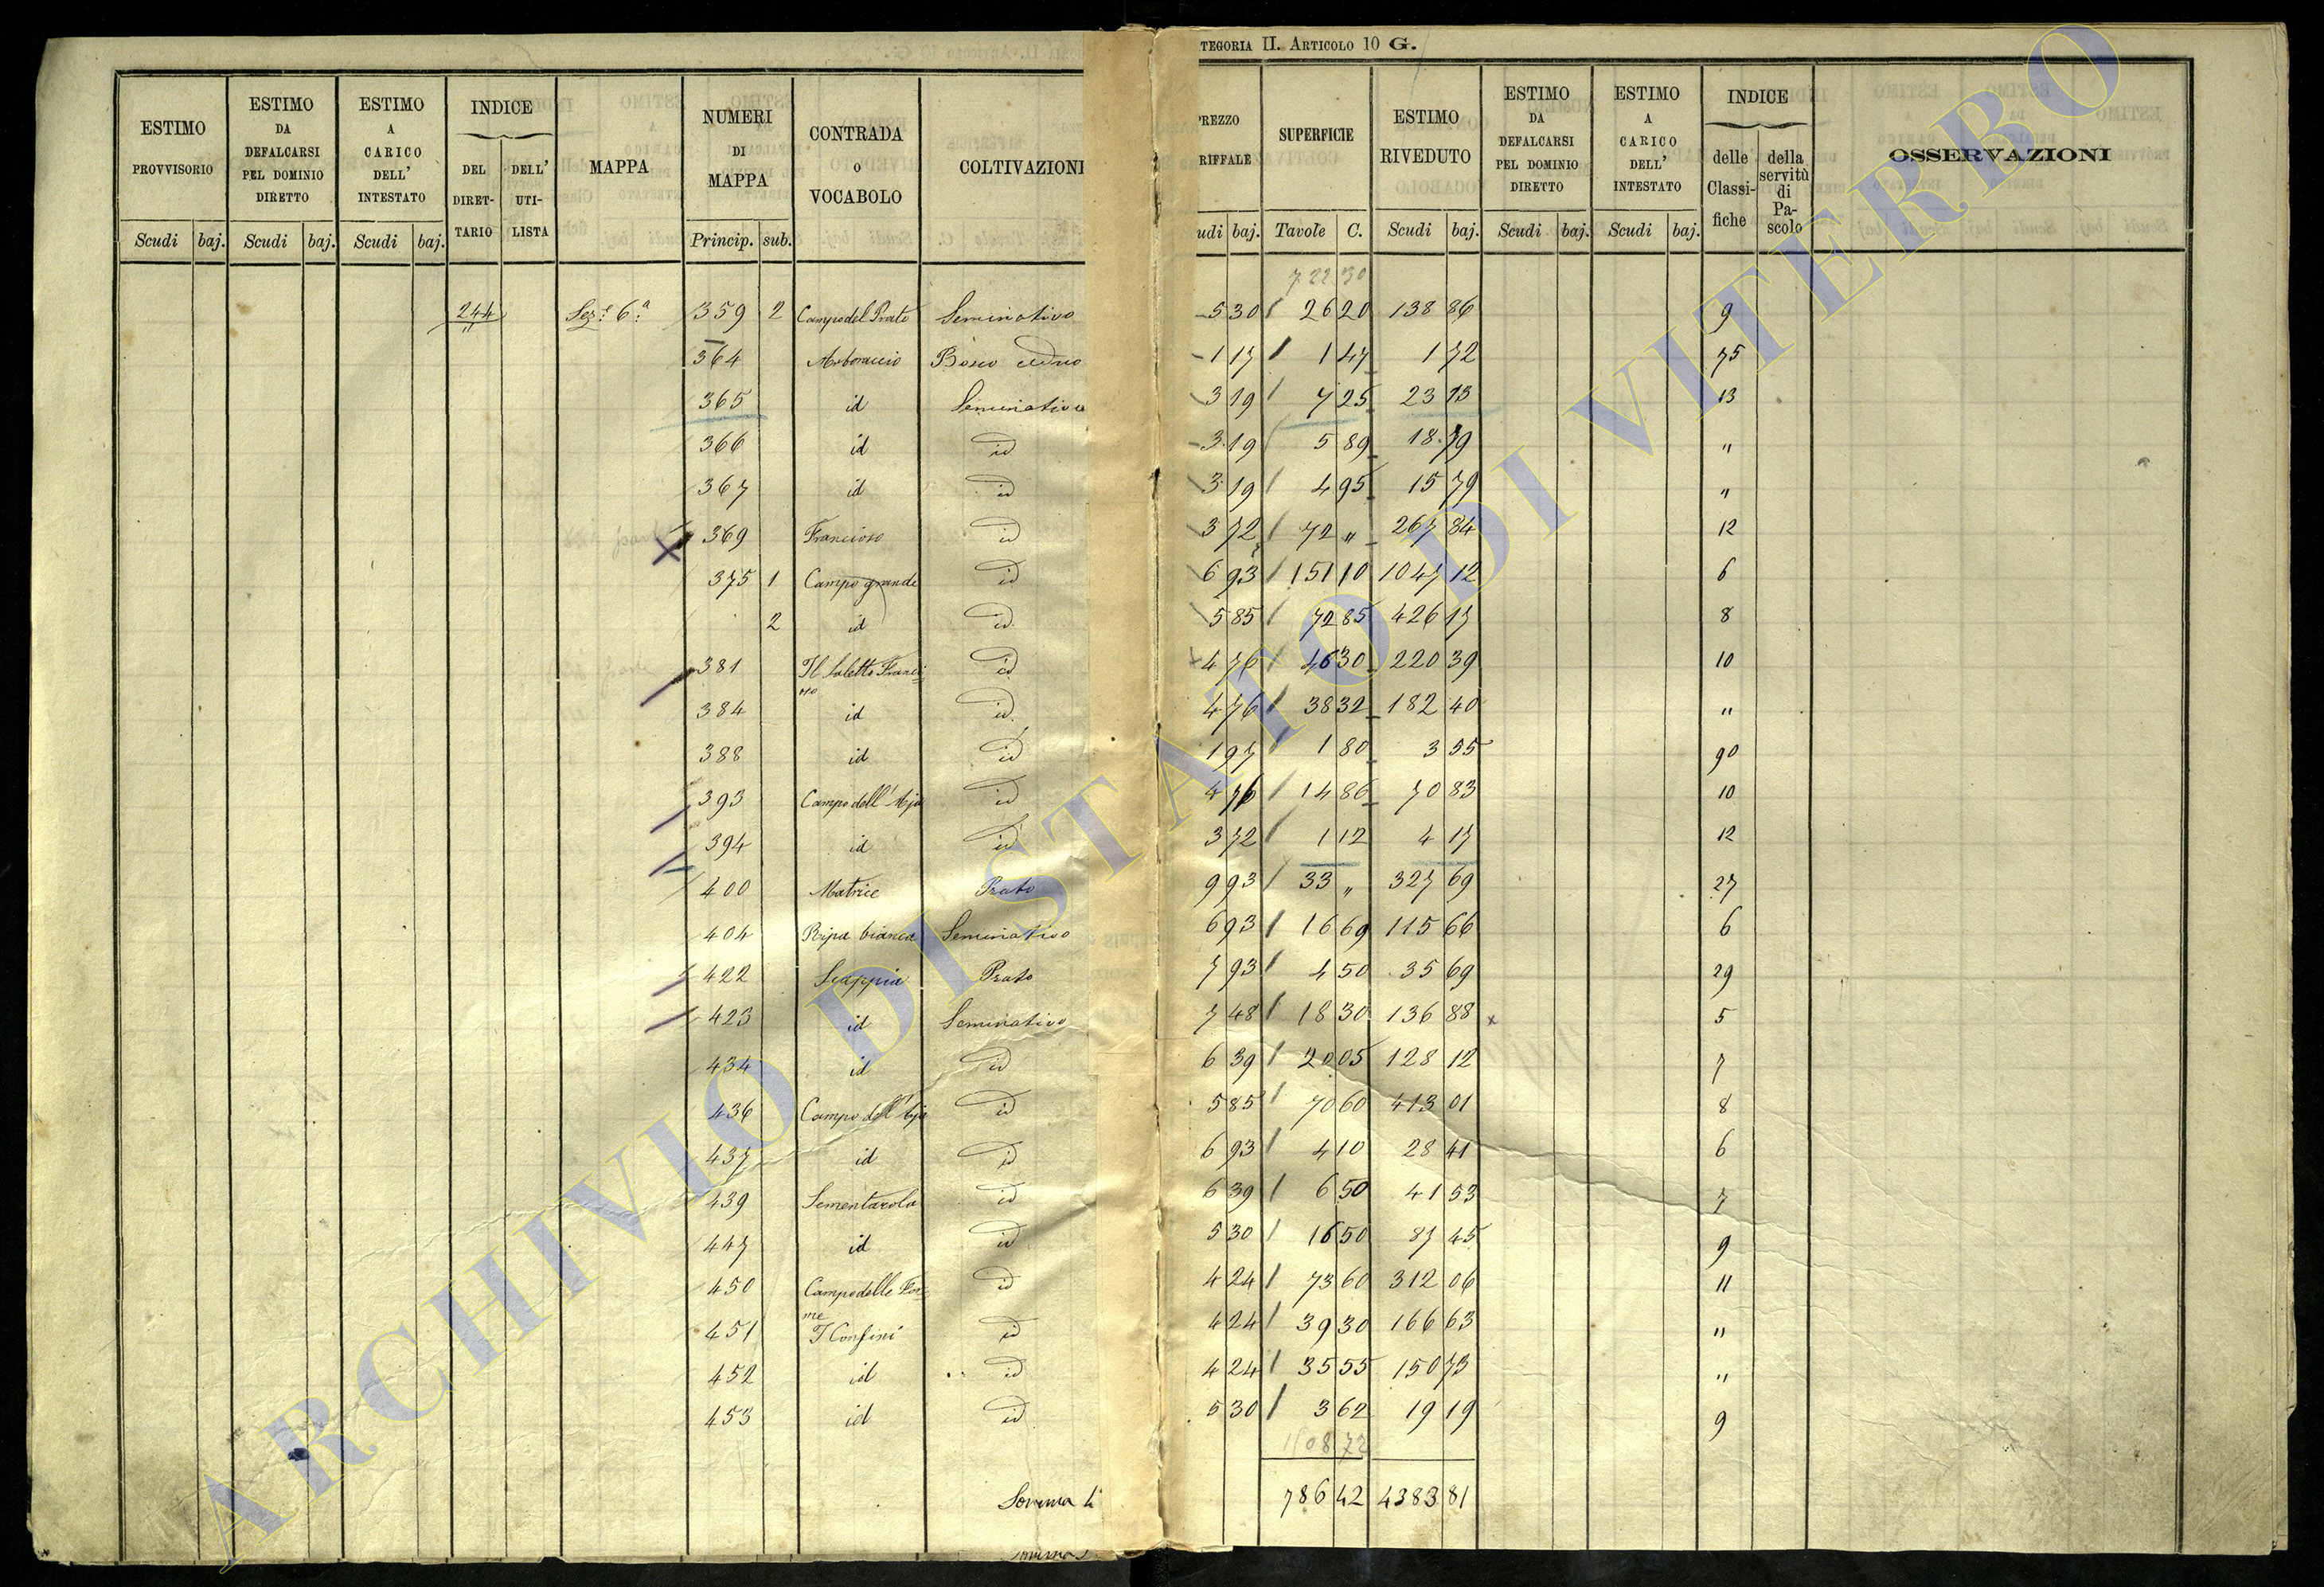 TEGORIA II. ARTICOLO 10 G.
ESTIMO PROVVISORIO
ESTIMO DA DEFALCARSI PEL DOMINIO DIRETTO
ESTIMO A CARICO DELL' INTESTATO
INDICE
DEL DIRET-TARIO
DELL' UTI-LISTA
MAPPA
NUMERI DI MAPPA
CONTRADA o VOCABOLO
COLTIVAZIONI
PREZZO RIFFALE
SUPERFICIE
ESTIMO RIVEDUTO
ESTIMO DA DEFALCARSI PEL DOMINIO DIRETTO
ESTIMO A CARICO DELL' INTESTATO
INDICE
delle Classi-fiche
della servitù di Pa-scolo
OSSERVAZIONI
Scudi baj. Scudi baj. Scudi baj. Princip. sub. udi baj. Tavole C. Scudi baj. Scudi baj. Scudi baj.
722 30
244 Sez.e 6.a 359 2 Campo del Prato Seminativo 5 30 26 20 138 86 9
364 Arboraccio Bosco ceduo 1 17 1 47 1 72 75
365 id Seminativo 3 19 7 25 23 13 13
366 id id 3 19 5 89 18 79 "
367 id id 3 19 4 95 15 79 "
369 Francioso id 3 72 72 " 267 84 12
375 1 Campo grande id 6 93 151 10 1047 12 6
2 id id 5 85 72 85 426 17 8
381 Il Saletto Franci-oso id 4 76 46 30 220 39 10
384 id id 4 76 38 32 182 40 "
388 id id 1 97 1 80 3 55 90
393 Campo dell'Aja id 4 76 14 86 70 83 10
394 id id 3 72 1 12 4 17 12
400 Matrice Prato 9 93 33 " 327 69 27
404 Ripa bianca Seminativo 6 93 16 69 115 66 6
422 Scappia Prato 7 93 4 50 35 69 29
423 id Seminativo 7 48 18 30 136 88 x 5
434 id id 6 39 20 05 128 12 7
436 Campo dell'Aja id 5 85 70 60 413 01 8
437 id id 6 93 4 10 28 41 6
439 Sementarola id 6 39 6 50 41 53 7
447 id id 5 30 16 50 87 45 9
450 Campo delle For-me id 4 24 73 60 312 06 11
451 I Confini id 4 24 39 30 166 63 "
452 id id 4 24 35 55 150 73 "
453 id id 5 30 3 62 19 19 9
1108 72
Somma 786 42 4383 81
ARCHIVIO DI STATO DI VITERBO